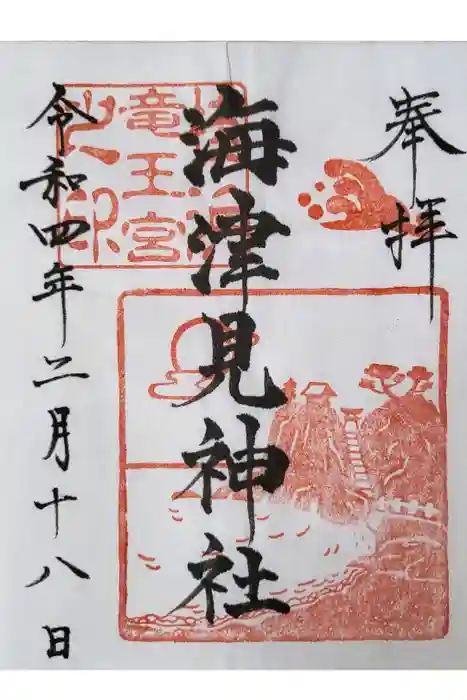 奉拝
海津見神社
竜王宮
之印
令和四年二月十八日